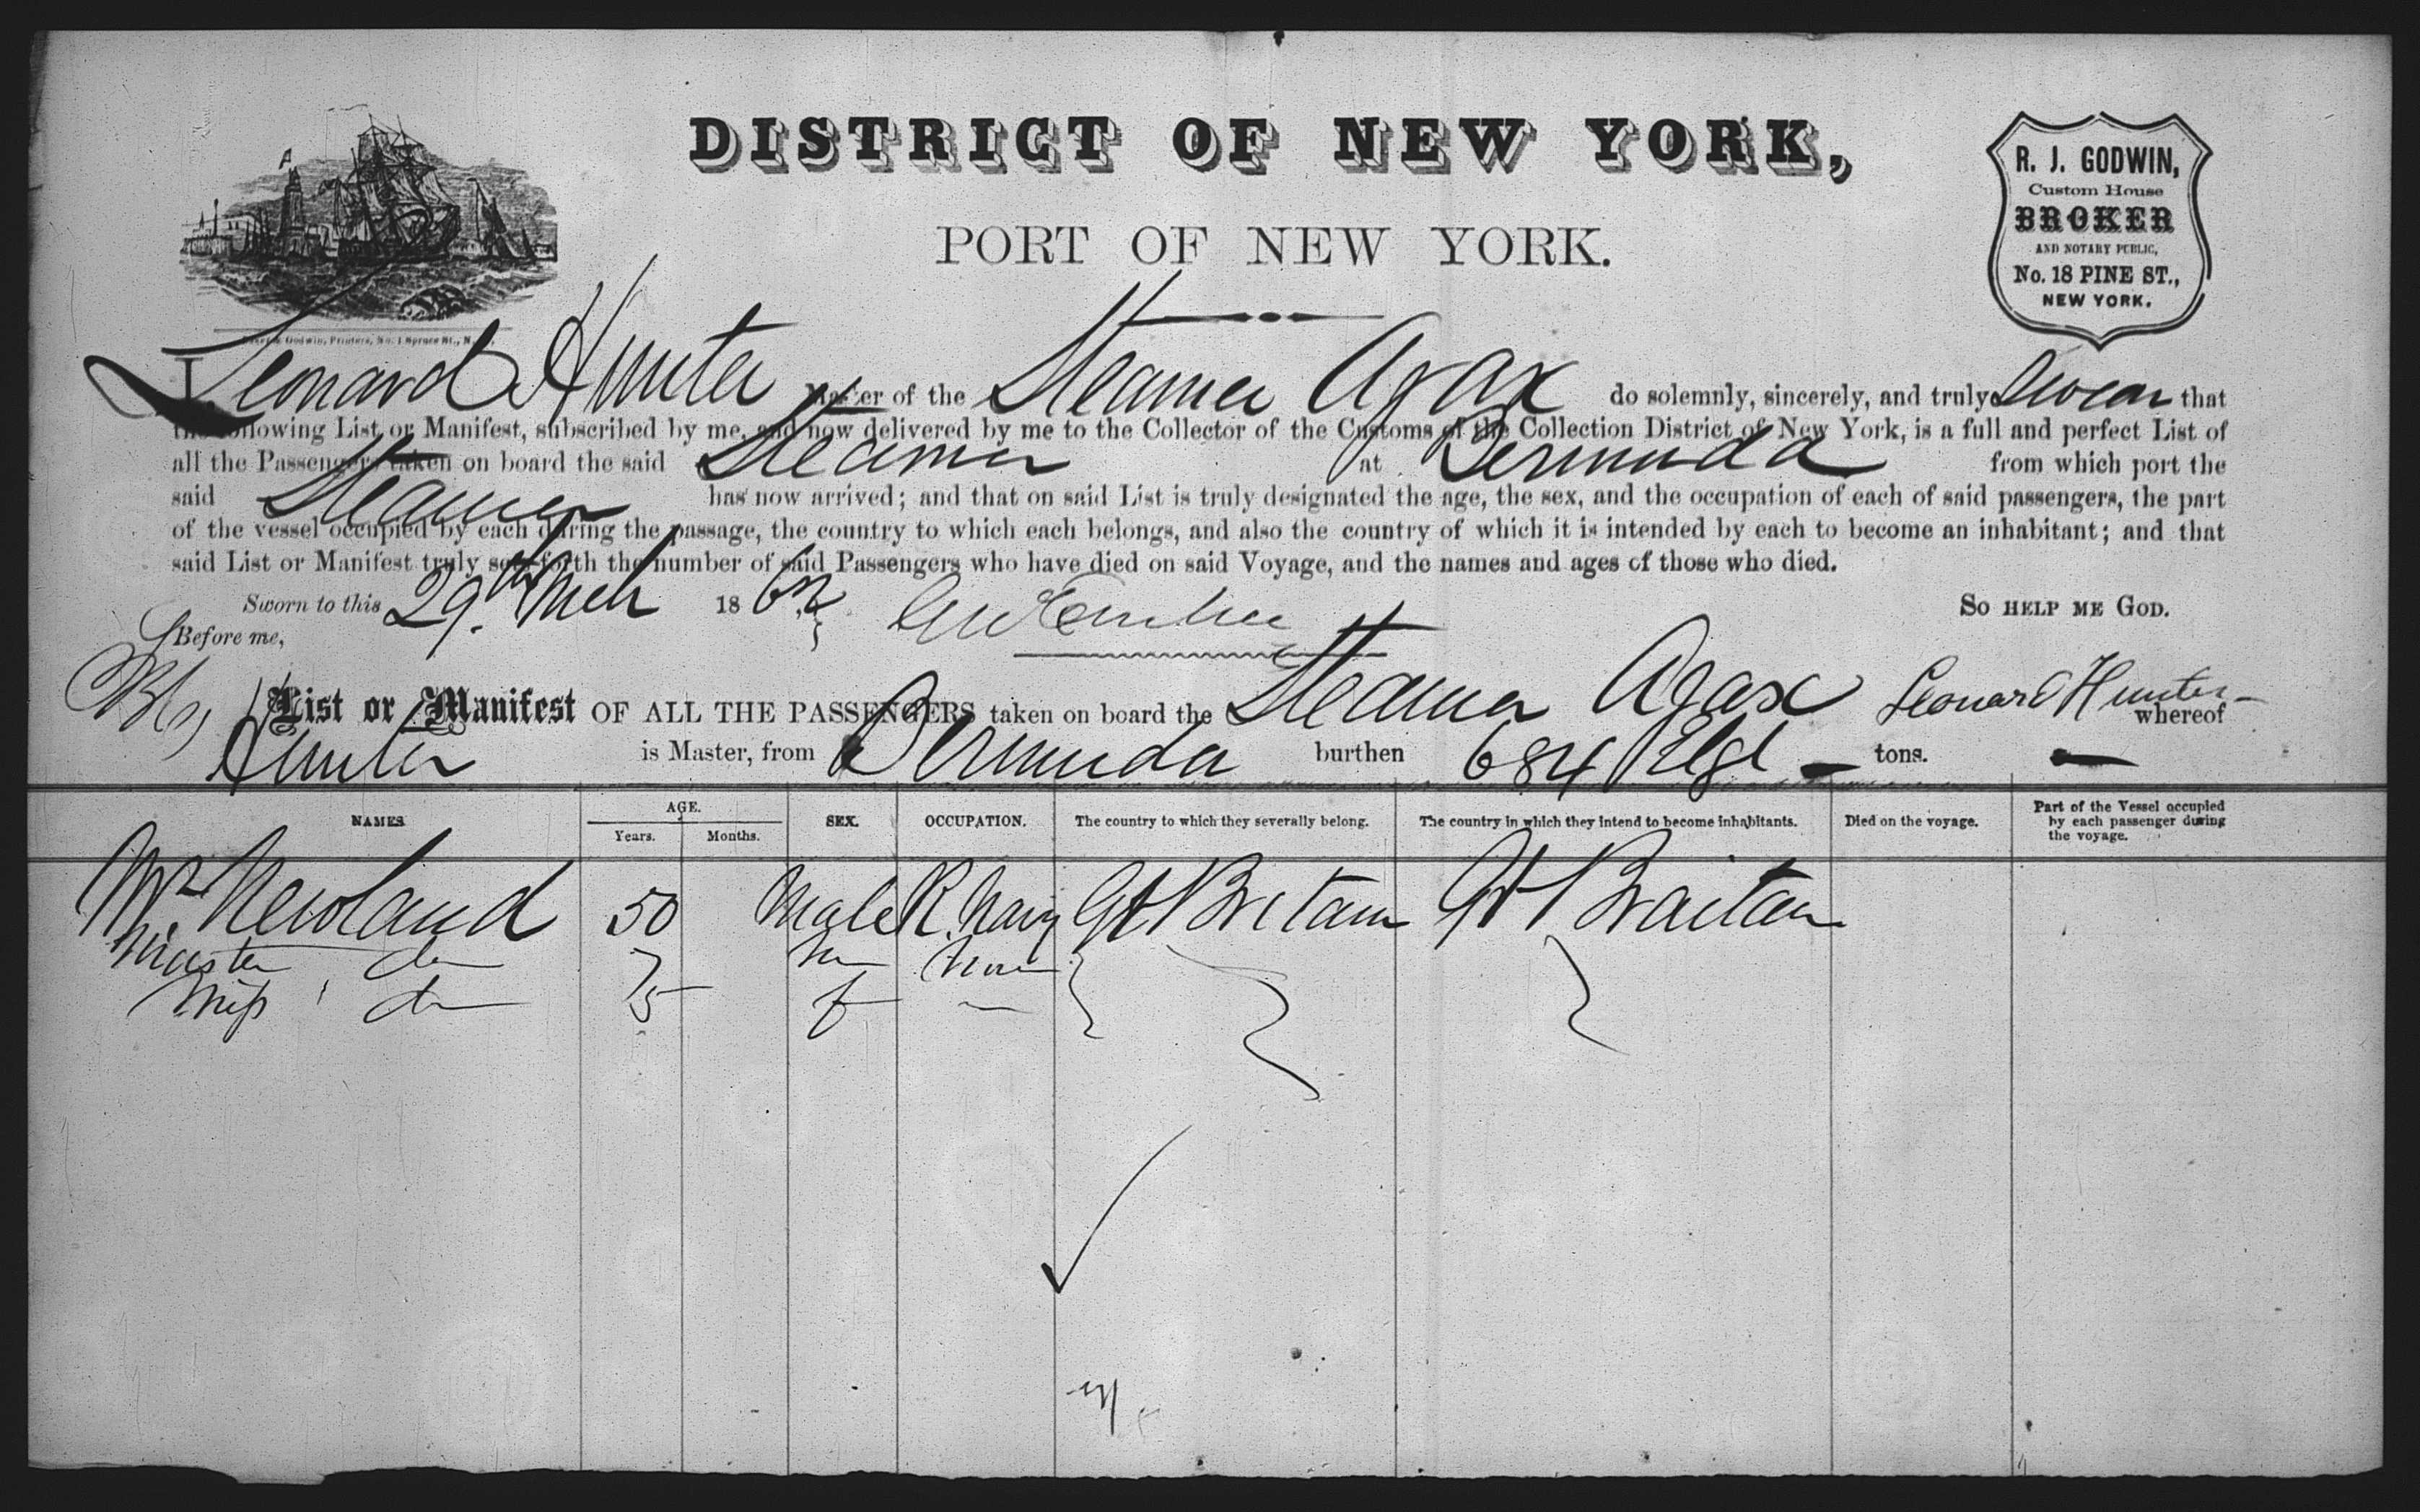 DISTRICT OF NEW YORK,
PORT OF NEW YORK.
R. J. GODWIN,
Custom House
BROKER
AND NOTARY PUBLIC,
No. 18 PINE ST.,
NEW YORK.
Godwin, Printers, No. 1 Spruce St., N. Y.
I, Leonard Hunter Master of the Steamer Ajax do solemnly, sincerely, and truly Swear that
the following List or Manifest, subscribed by me, and now delivered by me to the Collector of the Customs of the Collection District of New York, is a full and perfect List of
all the Passengers taken on board the said Steamer at Bermuda from which port the
said Steamer has now arrived; and that on said List is truly designated the age, the sex, and the occupation of each of said passengers, the part
of the vessel occupied by each during the passage, the country to which each belongs, and also the country of which it is intended by each to become an inhabitant; and that
said List or Manifest truly sets forth the number of said Passengers who have died on said Voyage, and the names and ages of those who died.
Sworn to this 29th Mch 186 So HELP ME GOD.
Before me,
List or Manifest OF ALL THE PASSENGERS taken on board the Steamer Ajax Leonard Hunter whereof
Hunter is Master, from Bermuda burthen 684 tons.
NAMES AGE. Years. Months. SEX. OCCUPATION. The country to which they severally belong. The country in which they intend to become inhabitants. Died on the voyage. Part of the Vessel occupied by each passenger during the voyage.
Mr. Newland 50 Male R. Navy Gt Britain Gt Braitain
Master do 7 m None
Miss do 5 f —